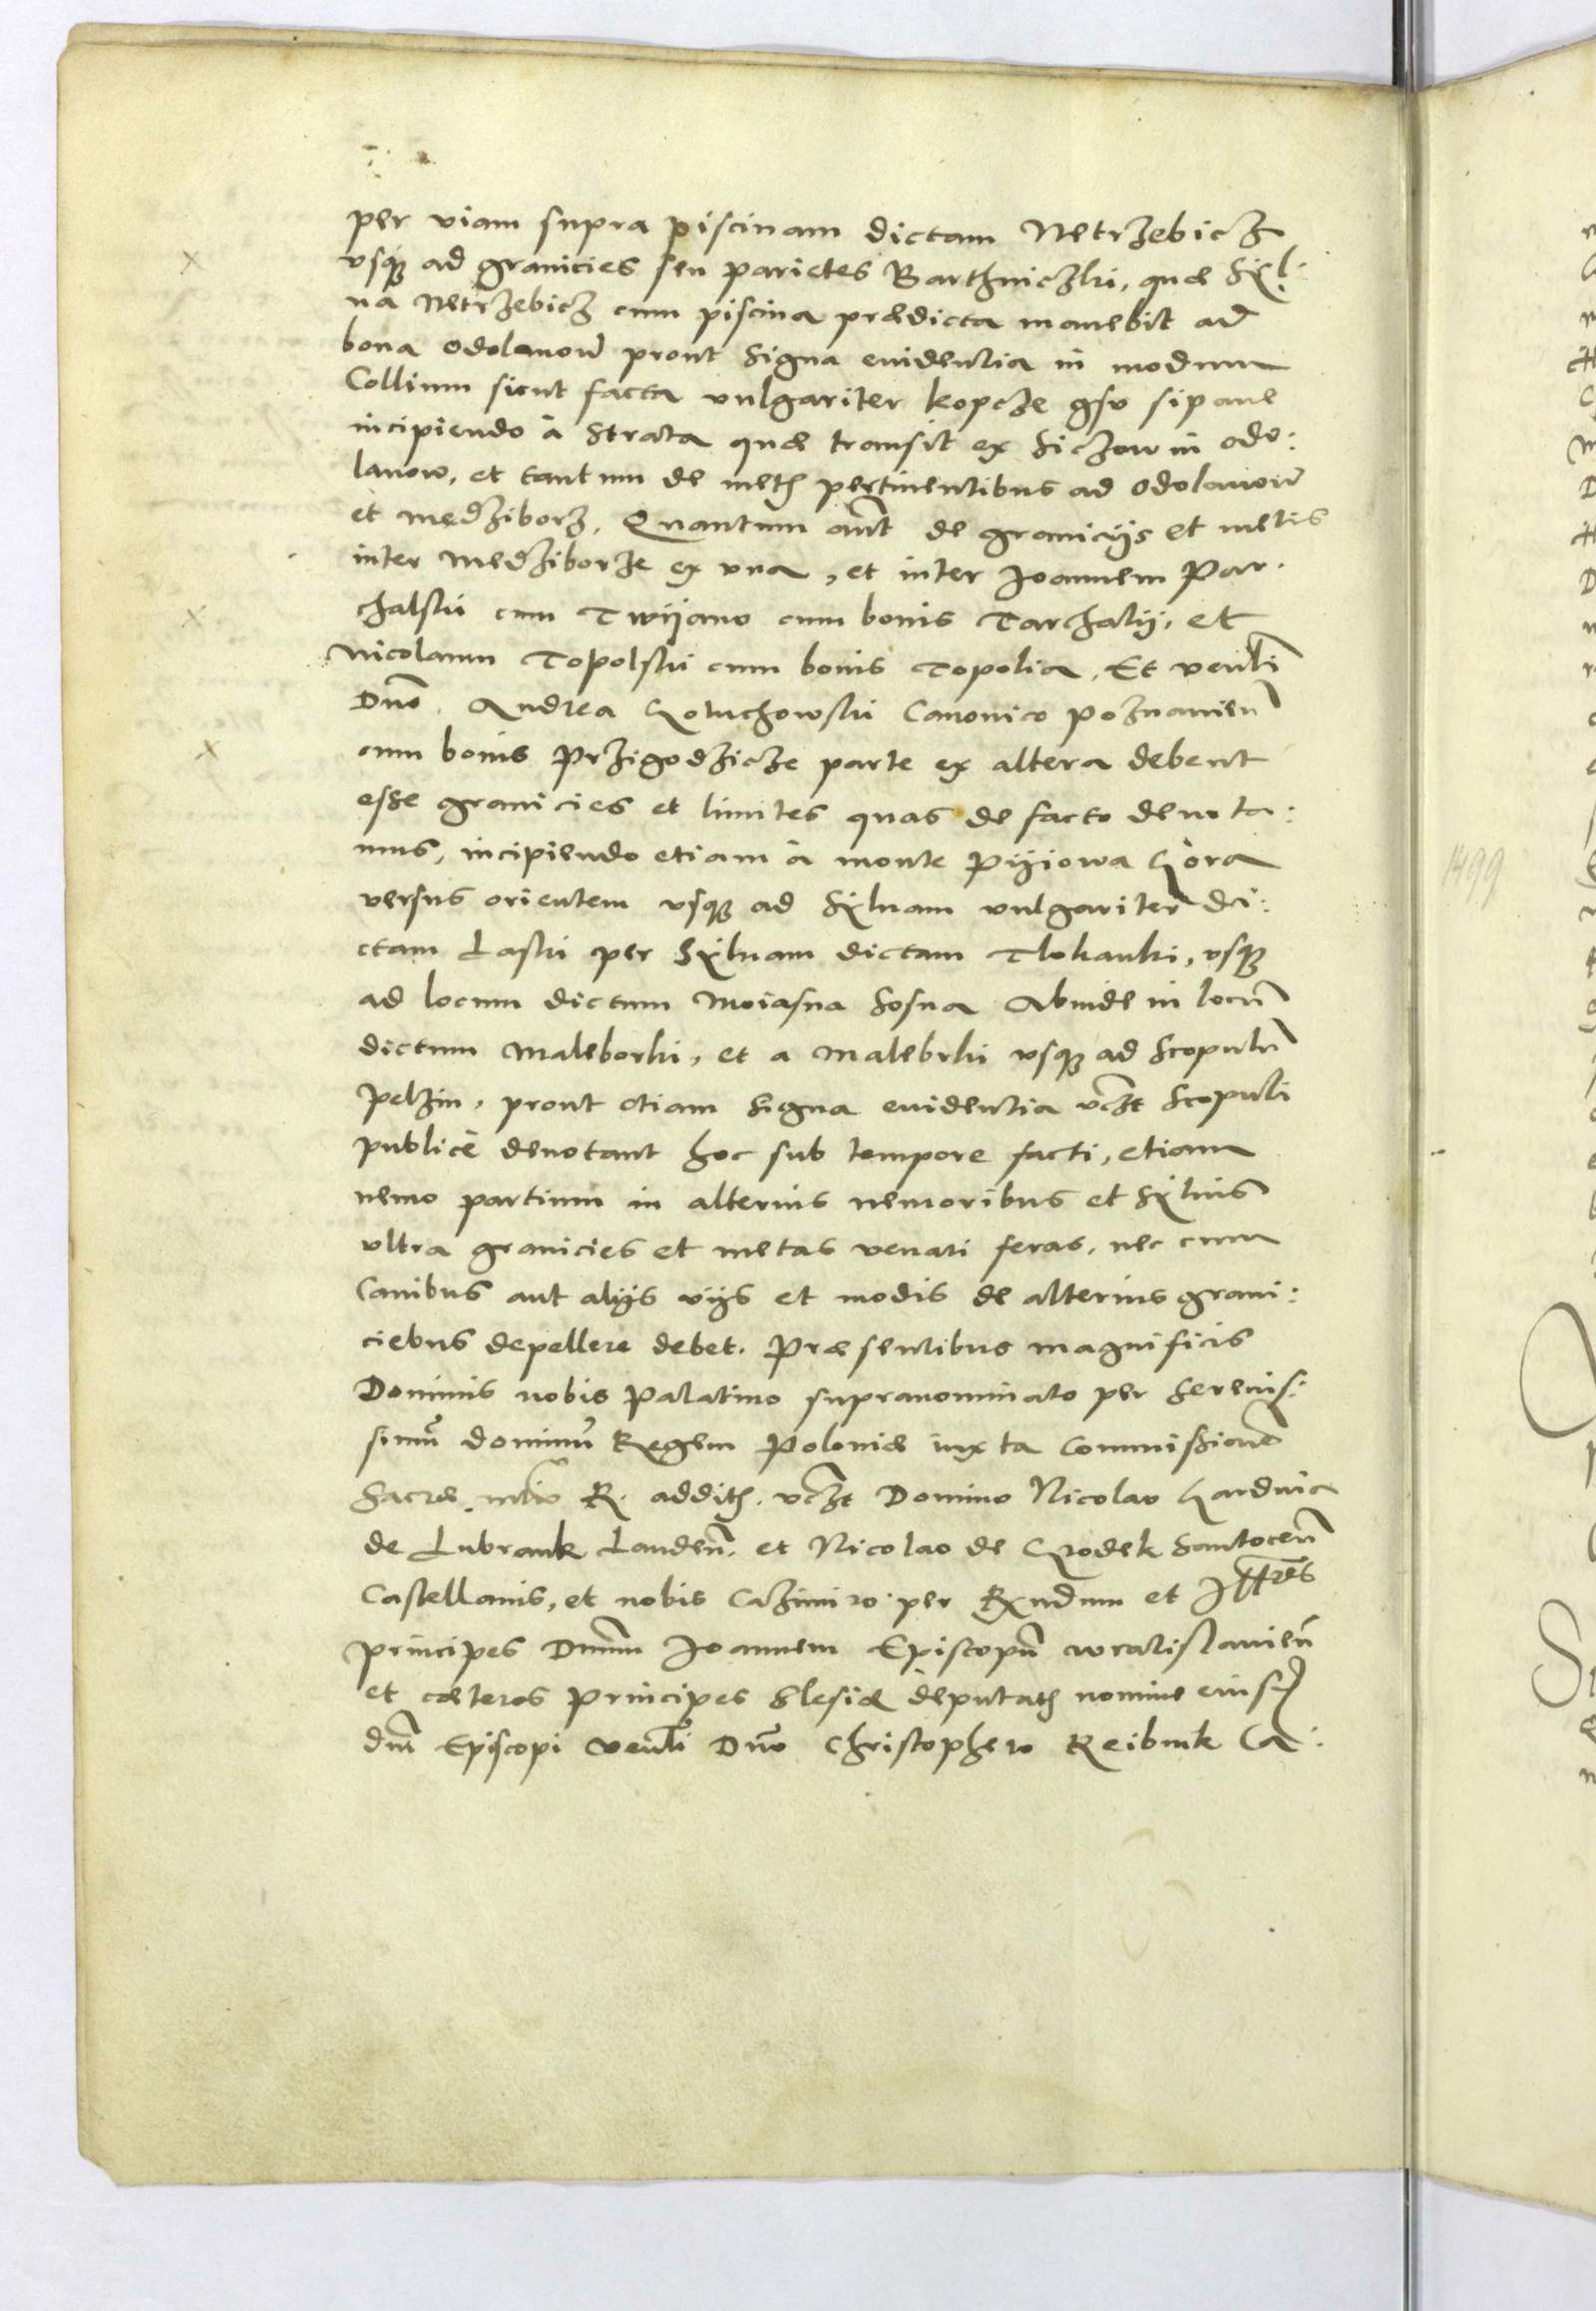 per viam supra piscinam dictam Netrzebicz
vsq3 ad granicies seu parietes Barthniczki, quæ Syl:
ua Netrzebicz cum piscina prædicta manebit ad
bona Odolanow prout signa euidentia in modum
Collium sicut facta vulgariter kopcze gsv sipane
incipiendo à Strata quæ transit ex Siczow in Odo:
lanow, et tantum de metis pertinentibus ad Odolanow
et Medziborz. Quantum aut de granicijs et metis
inter Medziborze ex vna, et inter Joannem Par.
chalski cum Twijano cum bonis Tarchalij, et
Nicolaum Topolski cum bonis Topolia, Et Venli
Dno. Andrea Gotuchowski Canonico Poznanien
cum bonis Przigodzicze parte ex altera debent
esse granicies et limites quas de facto denota:
mus, incipiendo etiam à monte Pijiowa Gora
versus orientem vsq3 ad Syluam vulgariter di:
ctam Laski per Syluam dictam Tlokanki, vsq3
ad locum dictum Moiasna Sosna Abinde in locu
dictum Maleborki, et a Malebrki vsq3 ad Scopulu
Pelzin, prout etiam signa euidentia vczt Scopuli
publicè denotant hoc sub tempore facti, etiam
nemo partium in alterius nemoribus et Syluis
vltra granicies et metas venari feras, nec cum
Canibus aut alijs vijs et modis de alterius grani:
ciebus depellere debet. Præsentibus magnificis
Dominis nobis Palatino supranominato per Serenis:
simu dominu Regem Poloniæ iuxta Commissione
Sacræ R. addit. vczt Domino Nicolao Gardnia
de Lubrank Landen. et Nicolao de Grodek Santocen
Castellanis, et nobis Cazimiro per Rndum et Illres
principes Dnum Joannem Episcopu wratislauien
et cæteros Principes Slesiæ deputatis nomine eiusd
dni Episcopi Venli Dno Christophero Reibnik Ca:
1499